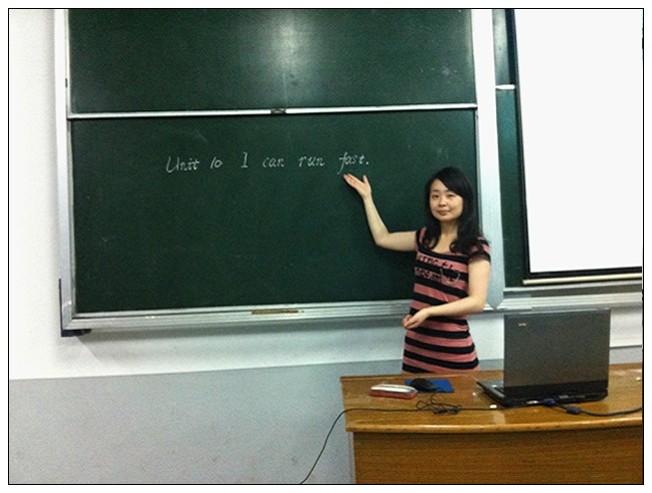 Unit 10 I can run fast.